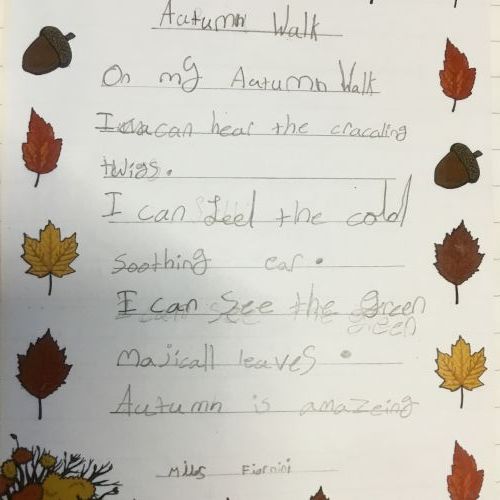 Autumn Walk
On my Autumn Walk
I can hear the cracaling
twigs.
I can feel the cold
soothing ear.
I can see the green
majicall leaves.
Autumn is amazeing